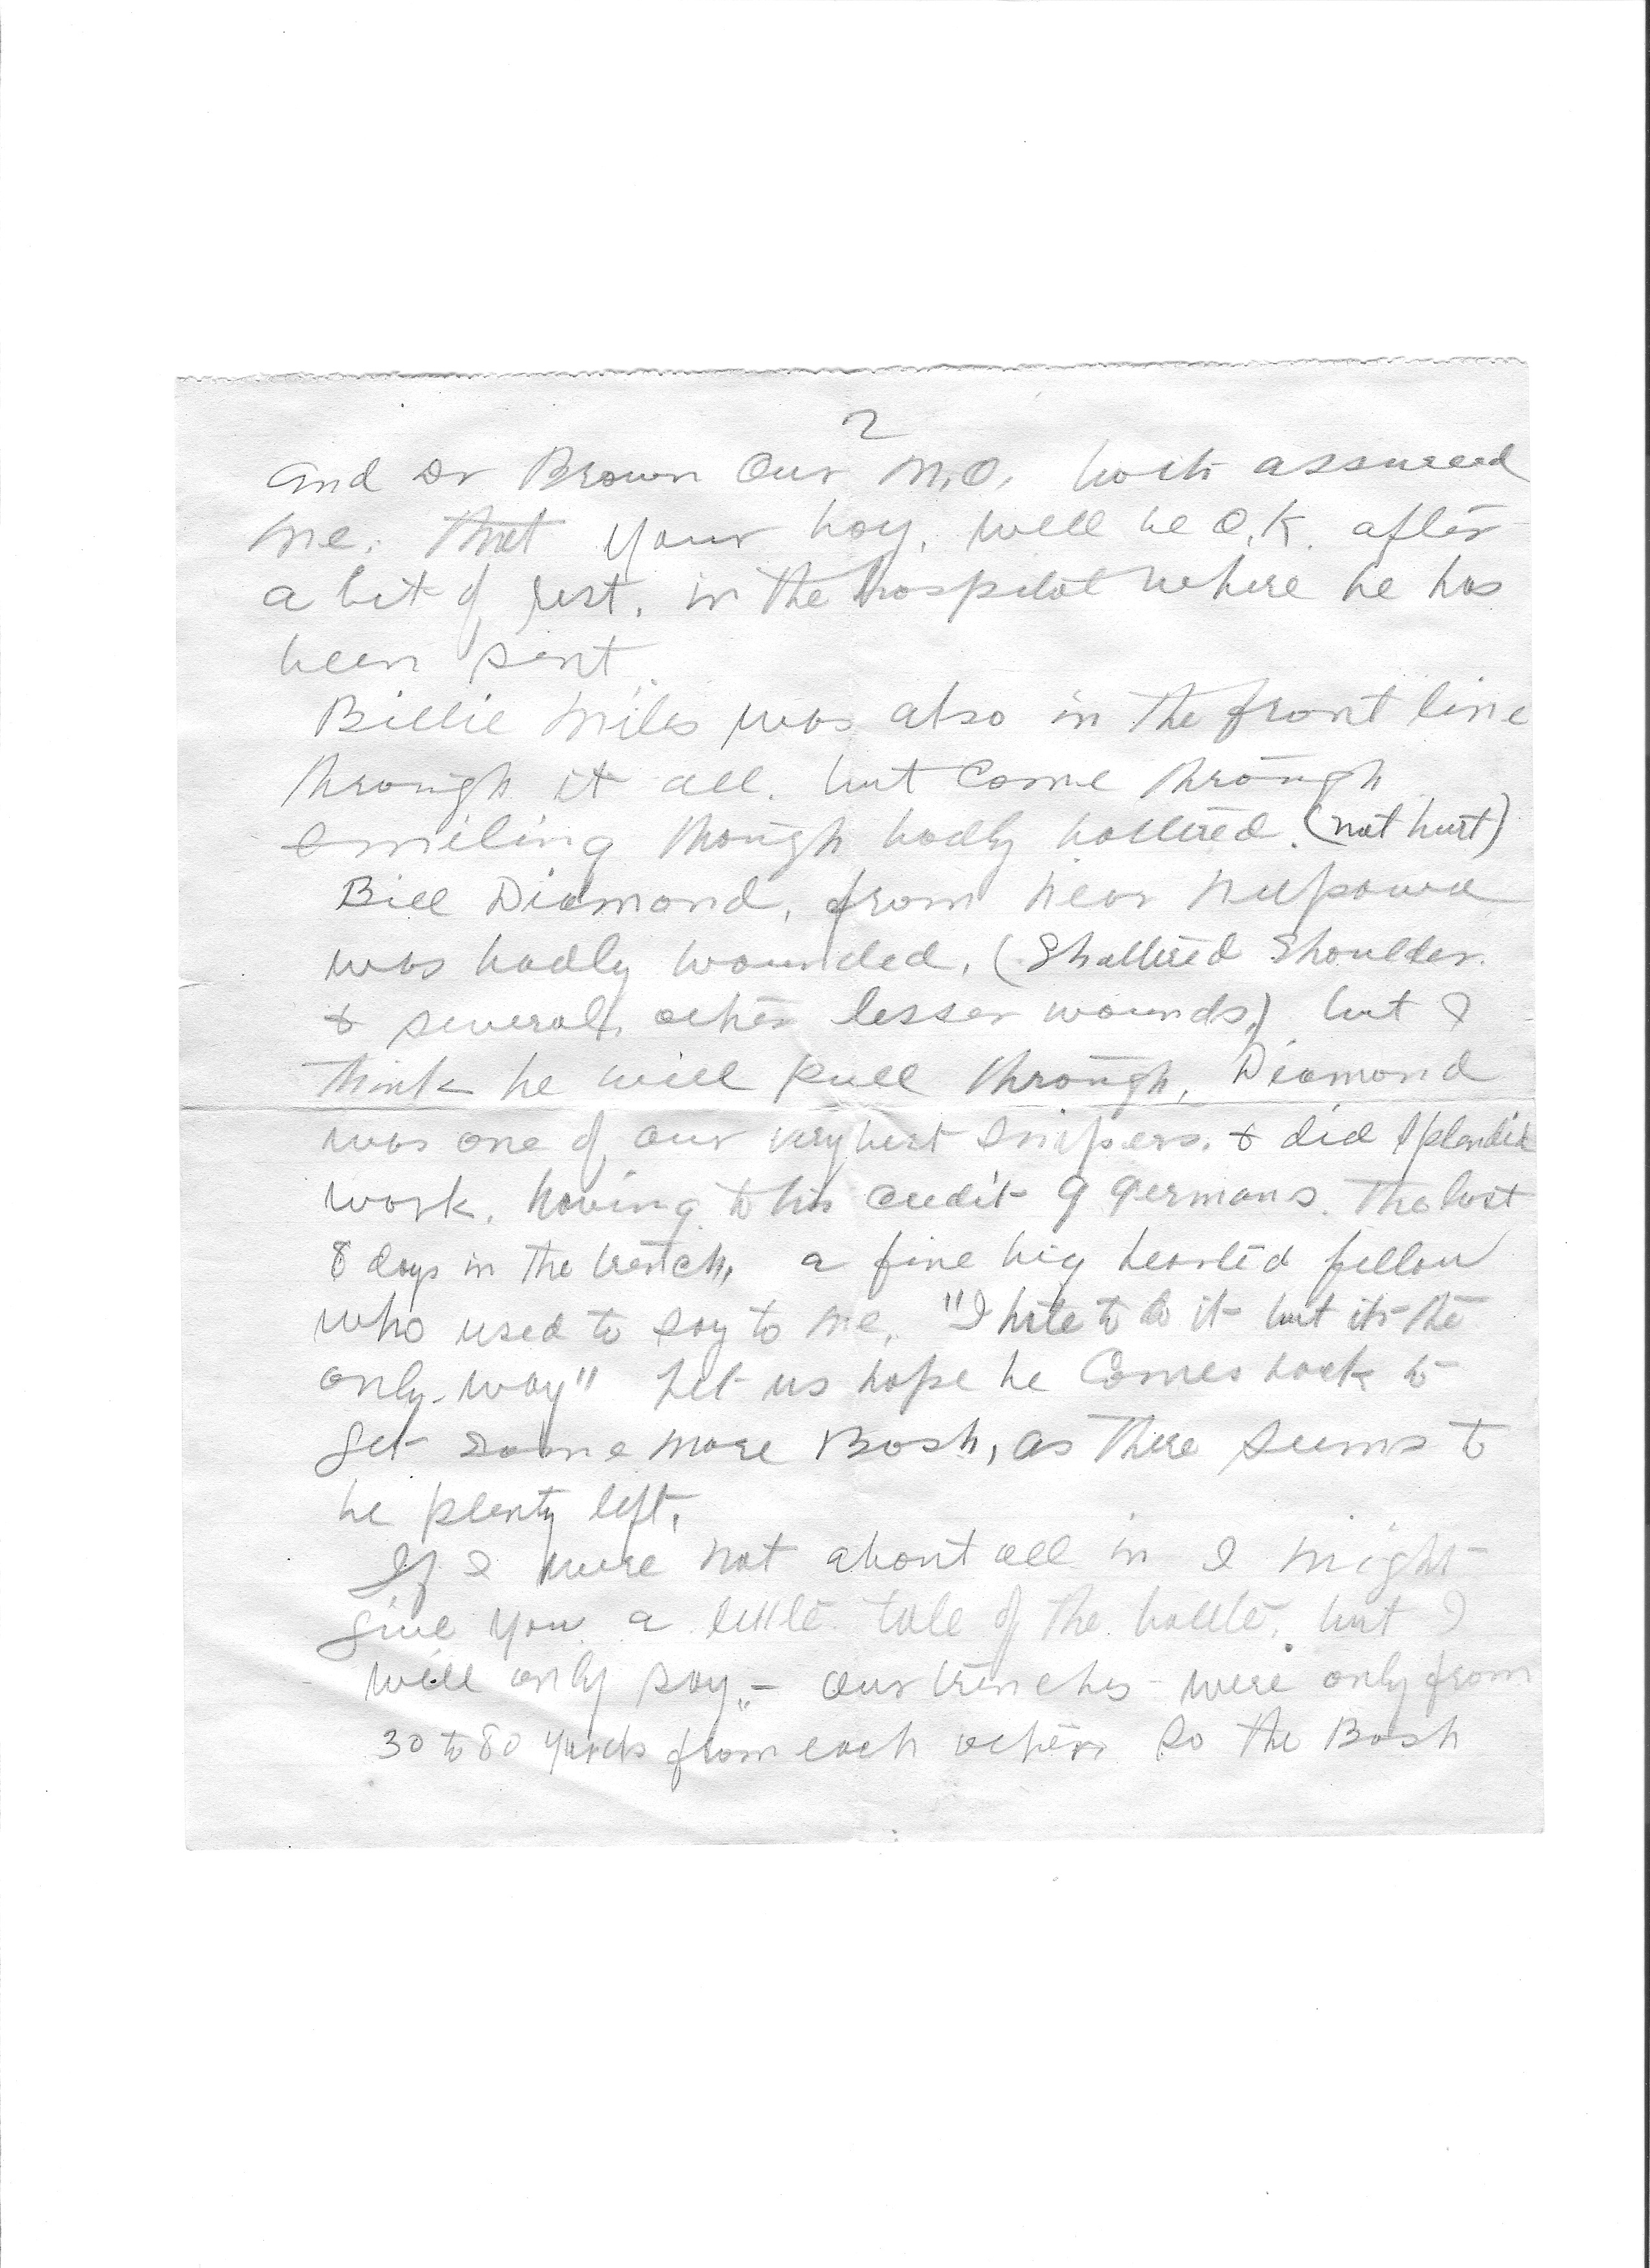 2
and Dr Brown Our M.O. both assured
me. that your boy, will be O.K. after
a bit of rest, in the hospital where he has
been sent
Billie Miles was also in the front line
through it all. but Come through
smiling though badly battered. (not hurt)
Bill Diamond, from near Neepawa
was badly wounded, (Shattered Shoulder.
& several other lesser wounds,) but I
think he will pull through, Diamond
was one of our very best snipers. & did splendid
work. having to his credit 9 germans. The last
8 days in the trench, a fine big hearted fellow
who used to say to me, "I hate to do it but its the
only way" Let us hope he Comes back to
get some more Bosh, as there seems to
be plenty left.
If I were not about all in I might
give you a little tale of the battle, but I
will only say,- our trenches were only from
30 to 80 yards from each other so the Bosh